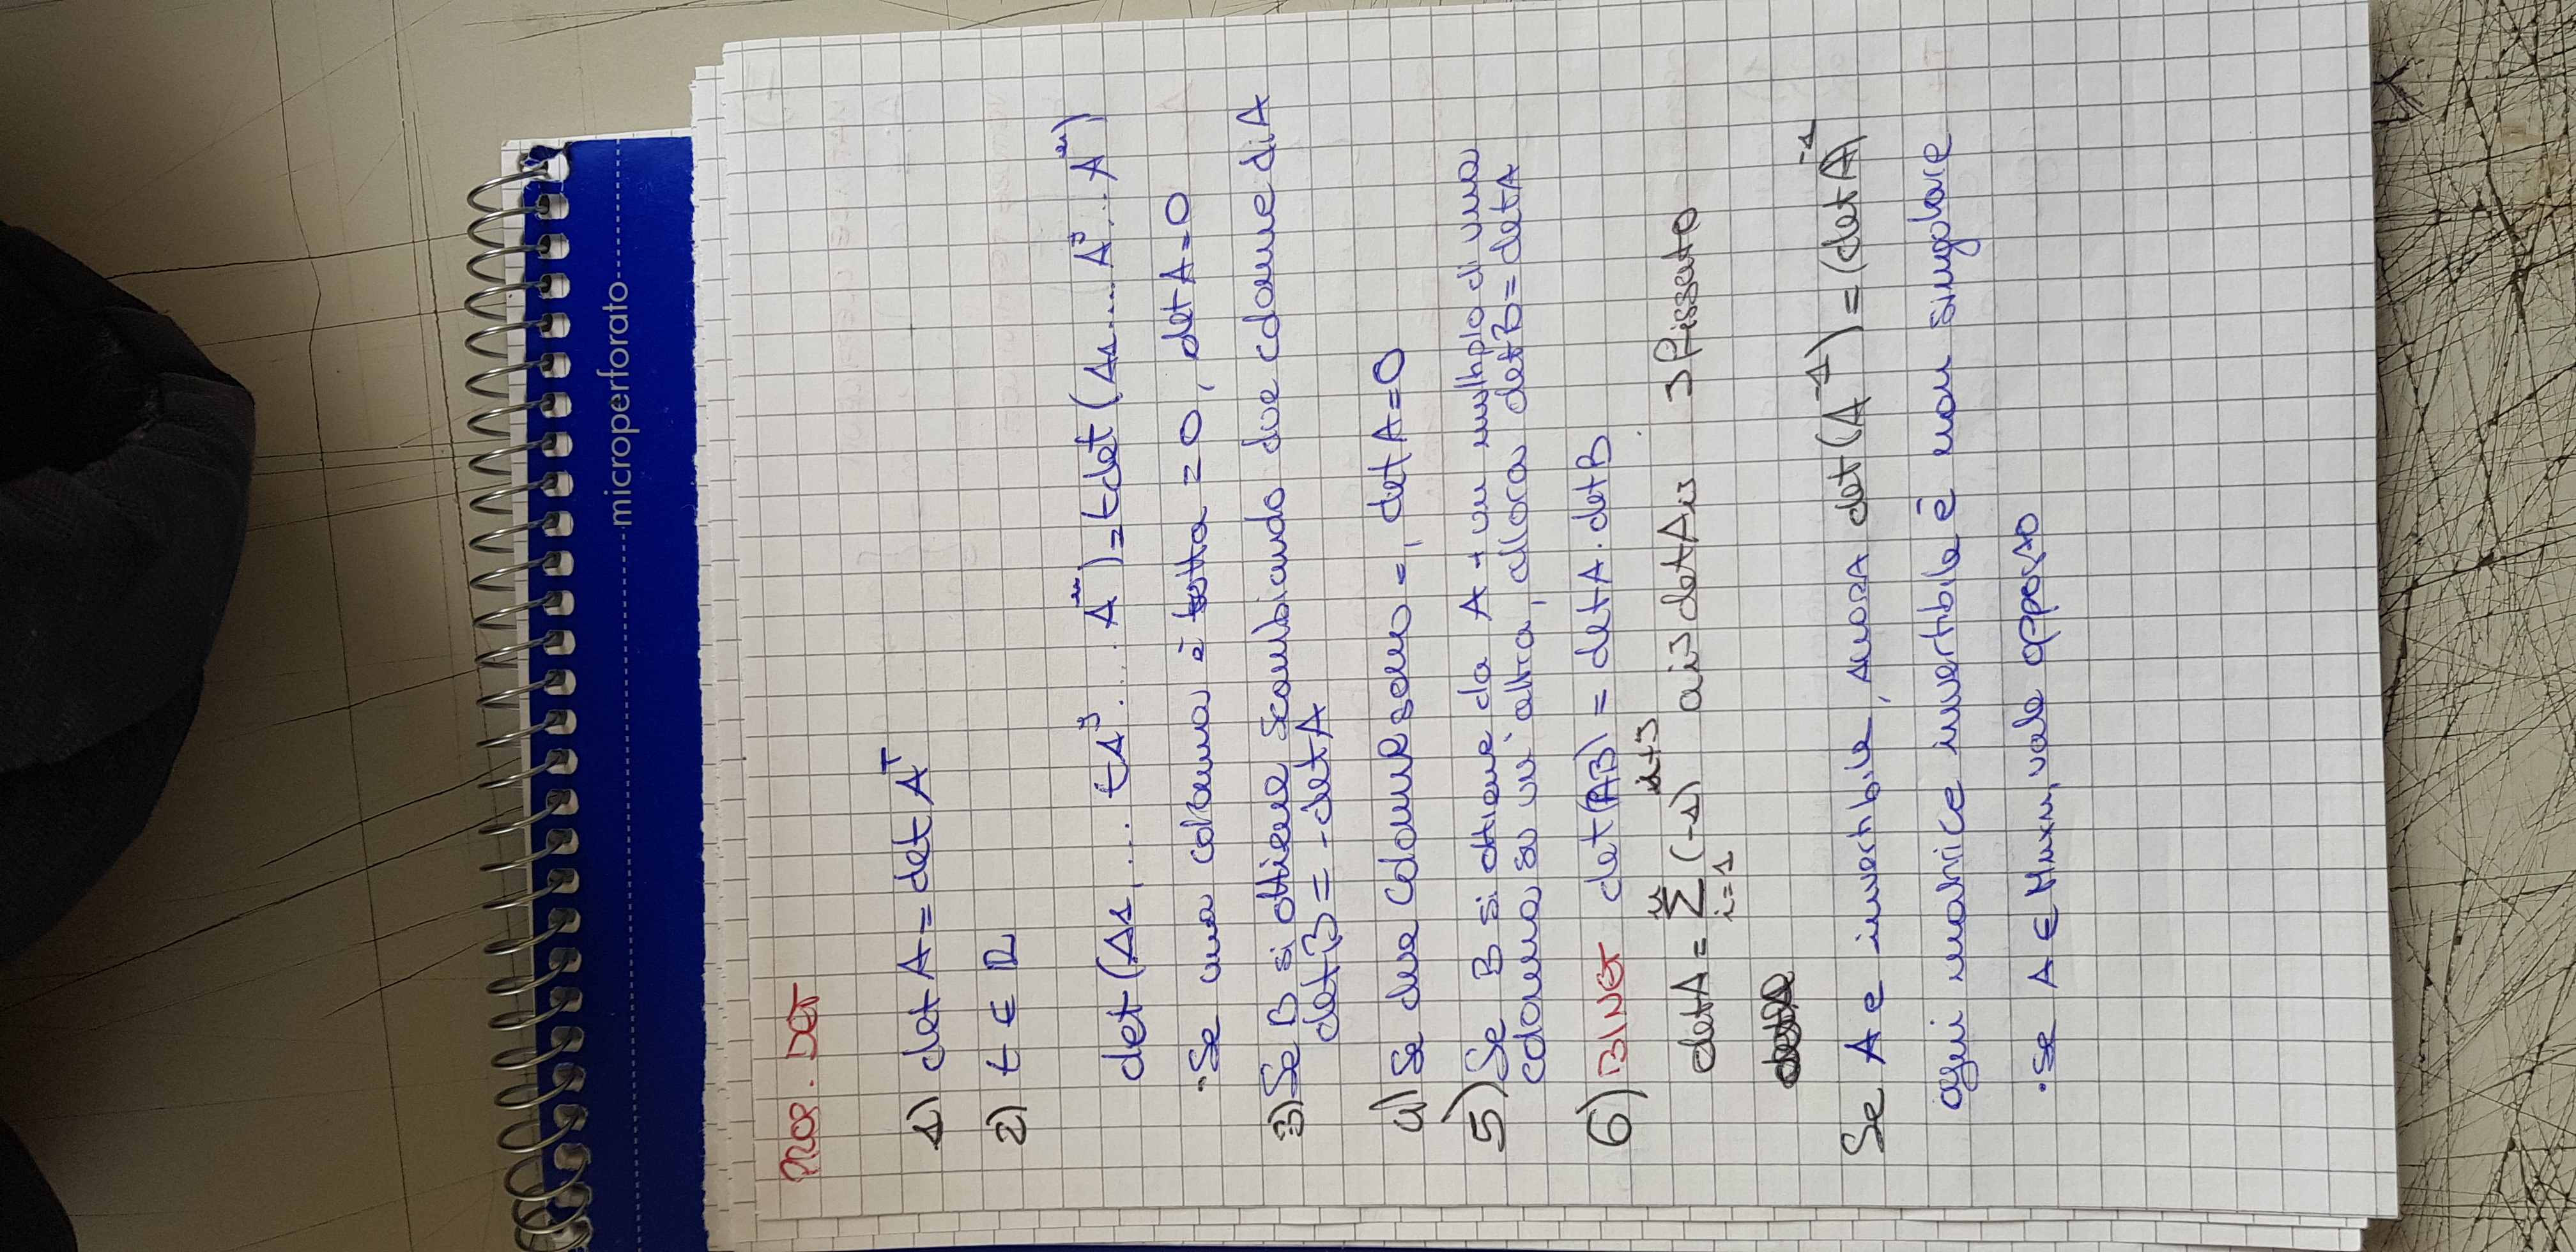 microperforato
PROP. DET
1) det A = det Aᵀ
2) t ∈ ℝ
det (A1, ... tAʲ ... Aⁿ) = t det (A1 .... Aʲ ... Aⁿ)
• Se una colonna è tutta = 0, det A = 0
3) Se B si ottiene scambiando due colonne di A
det B = - det A
4) Se due colonne sono =, det A = 0
5) Se B si ottiene da A + un multiplo di una
colonna su un'altra, allora det B = det A
6) BINET det(AB) = det A . det B
det A = Σⁿᵢ₌₁ (-1)ⁱ⁺ʲ aij det Aij J fissato
Se A e invertibile, ALLORA det (A⁻¹) = (det A)⁻¹
ogni matrice invertibile è non singolare
• Se A ∈ Mnxn, vale opposto